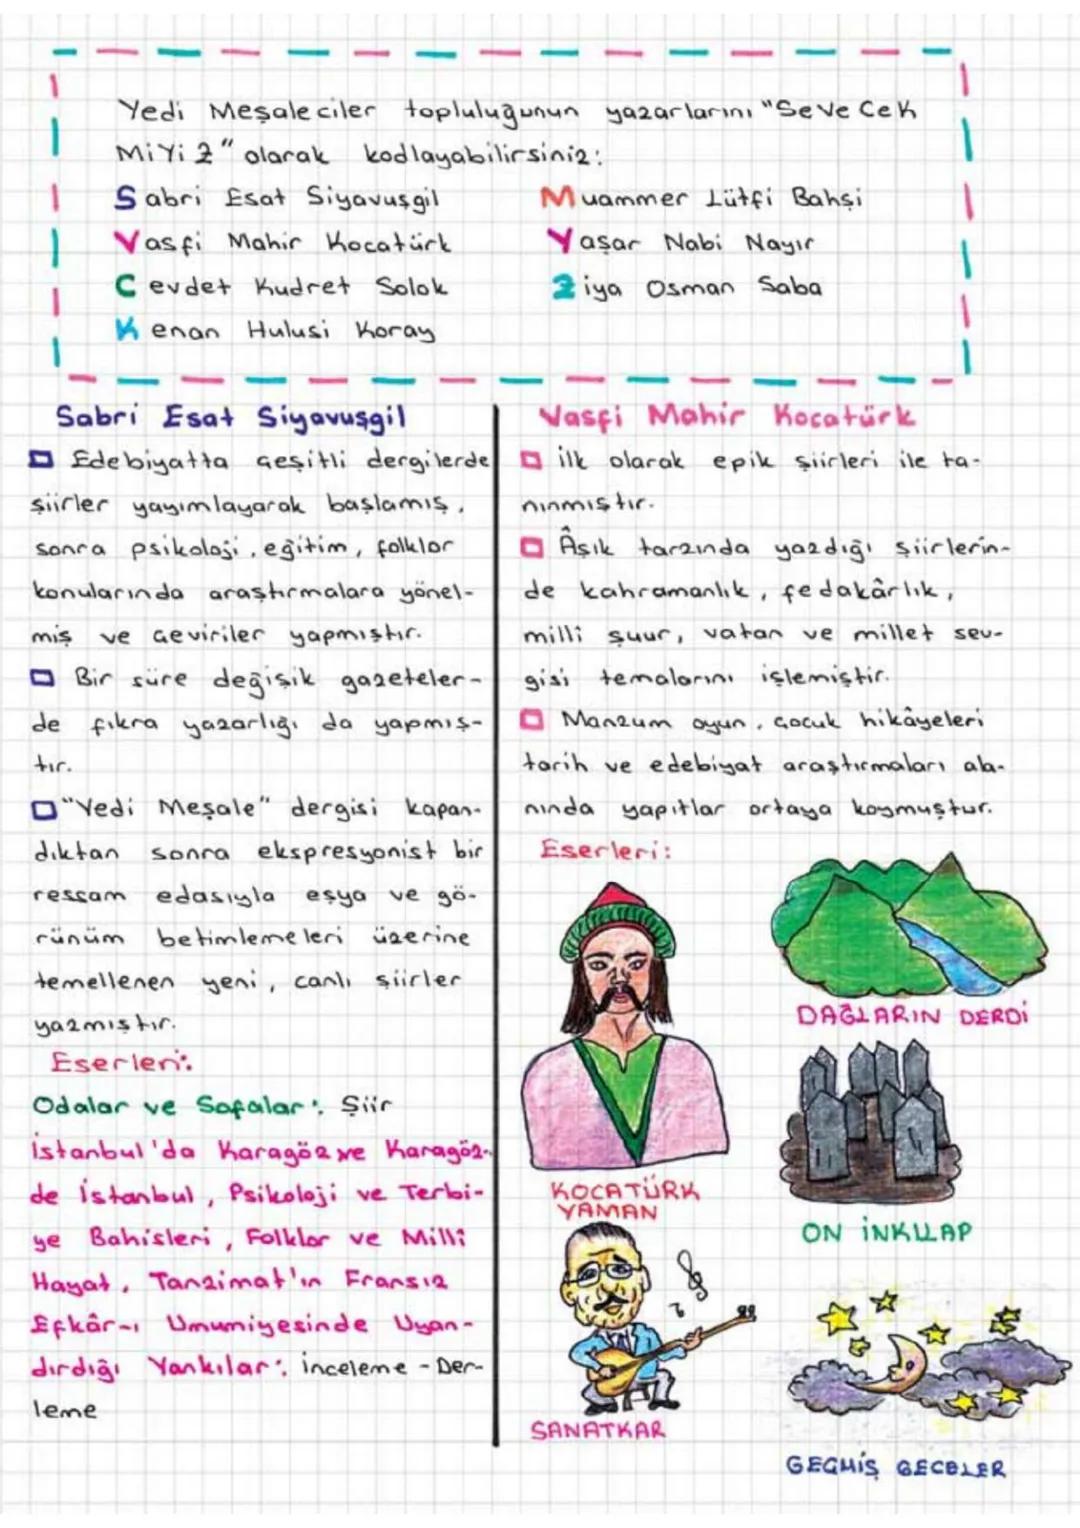 Yedi Meşaleciler topluluğunun yazarlarını "SeVe CeK
MiYi Z" olarak kodlayabilirsiniz:
Sabri Esat Siyavuşgil
Vasfi Mahir Kocatürk
Cevdet Kudret Solok
Kenan Hulusi Koray
Muammer Lütfi Bahşi
Yaşar Nabi Nayır
Ziya Osman Saba
Sabri Esat Siyavuşgil
Edebiyatta çeşitli dergilerde
şiirler yayımlayarak başlamış,
sonra psikoloji, eğitim, folklor
konularında araştırmalara yönel-
miş ve çeviriler yapmıştır.
Bir süre değişik gazeteler-
de fıkra yazarlığı da yapmış-
tır.
"Yedi Meşale" dergisi kapan-
dıktan sonra ekspresyonist bir
ressam edasıyla eşya ve gö-
rünüm betimlemeleri üzerine
temellenen yeni, canlı şiirler
yazmıştır.
Eserleri:
Odalar ve Sofalar: Şiir
İstanbul'da Karagöz ve Karagöz-
de İstanbul, Psikoloji ve Terbi-
ye Bahisleri, Folklor ve Millî
Hayat, Tanzimat'ın Fransız
Efkâr-ı Umumiyesinde Uyan-
dırdığı Yankılar: İnceleme - Der-
leme
Vasfi Mahir Kocatürk
İlk olarak epik şiirleri ile ta-
nınmıştır.
Âşık tarzında yazdığı şiirlerin-
de kahramanlık, fedakârlık,
millî şuur, vatan ve millet sev-
gisi temalarını işlemiştir.
Manzum oyun, çocuk hikâyeleri
tarih ve edebiyat araştırmaları ala-
nında yapıtlar ortaya koymuştur.
Eserleri:
DAĞLARIN DERDİ
KOCATÜRK
YAMAN
ON İNKILAP
SANATKAR
GEÇMİŞ GECELER